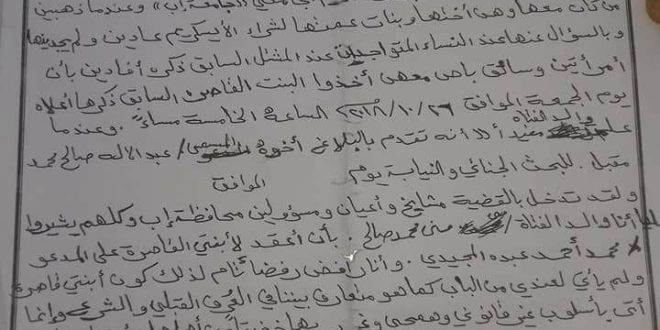 من كان معها وهن أختها وبنات عمتها لشراء الأيسكريم عادين ولم يجدينها
وبالسؤال عنها عند النساء المتواجدين عند المثل السابق ذكره أفادين بأن
أمرأتين وسائق باص معهن أخذوا البنت القاصر السابق ذكرها أعلاه
يوم الجمعة الموافق ٢٠١٨/١٠/٢٦ الساعة الخامسة مساءً. وعندما
علم والد الفتاة ألا أنه تقدم بالبلاغ أخوه المسمى/ عبدالاله صالح محمد
مقبل. للبحث الجنائي والنيابة يوم الموافق
ولقد تدخل بالقضية مشايخ وأعيان ومسؤولين محافظة إب وكلهم يشيروا
أنا والد الفتاة/ محمد صالح. بأن أعقد لأبنتي القاصرة على المدعو
محمد أحمد عبده المجيدي. وأنا رافض رفضاً تام لذلك كون أبنتي قاصرة
ولم يأتي لعندي من الباب كما هو متعارف بيننا في العرف القبلي والشرعي وإنما
أتى بأسلوب غير قانوني وهمجي